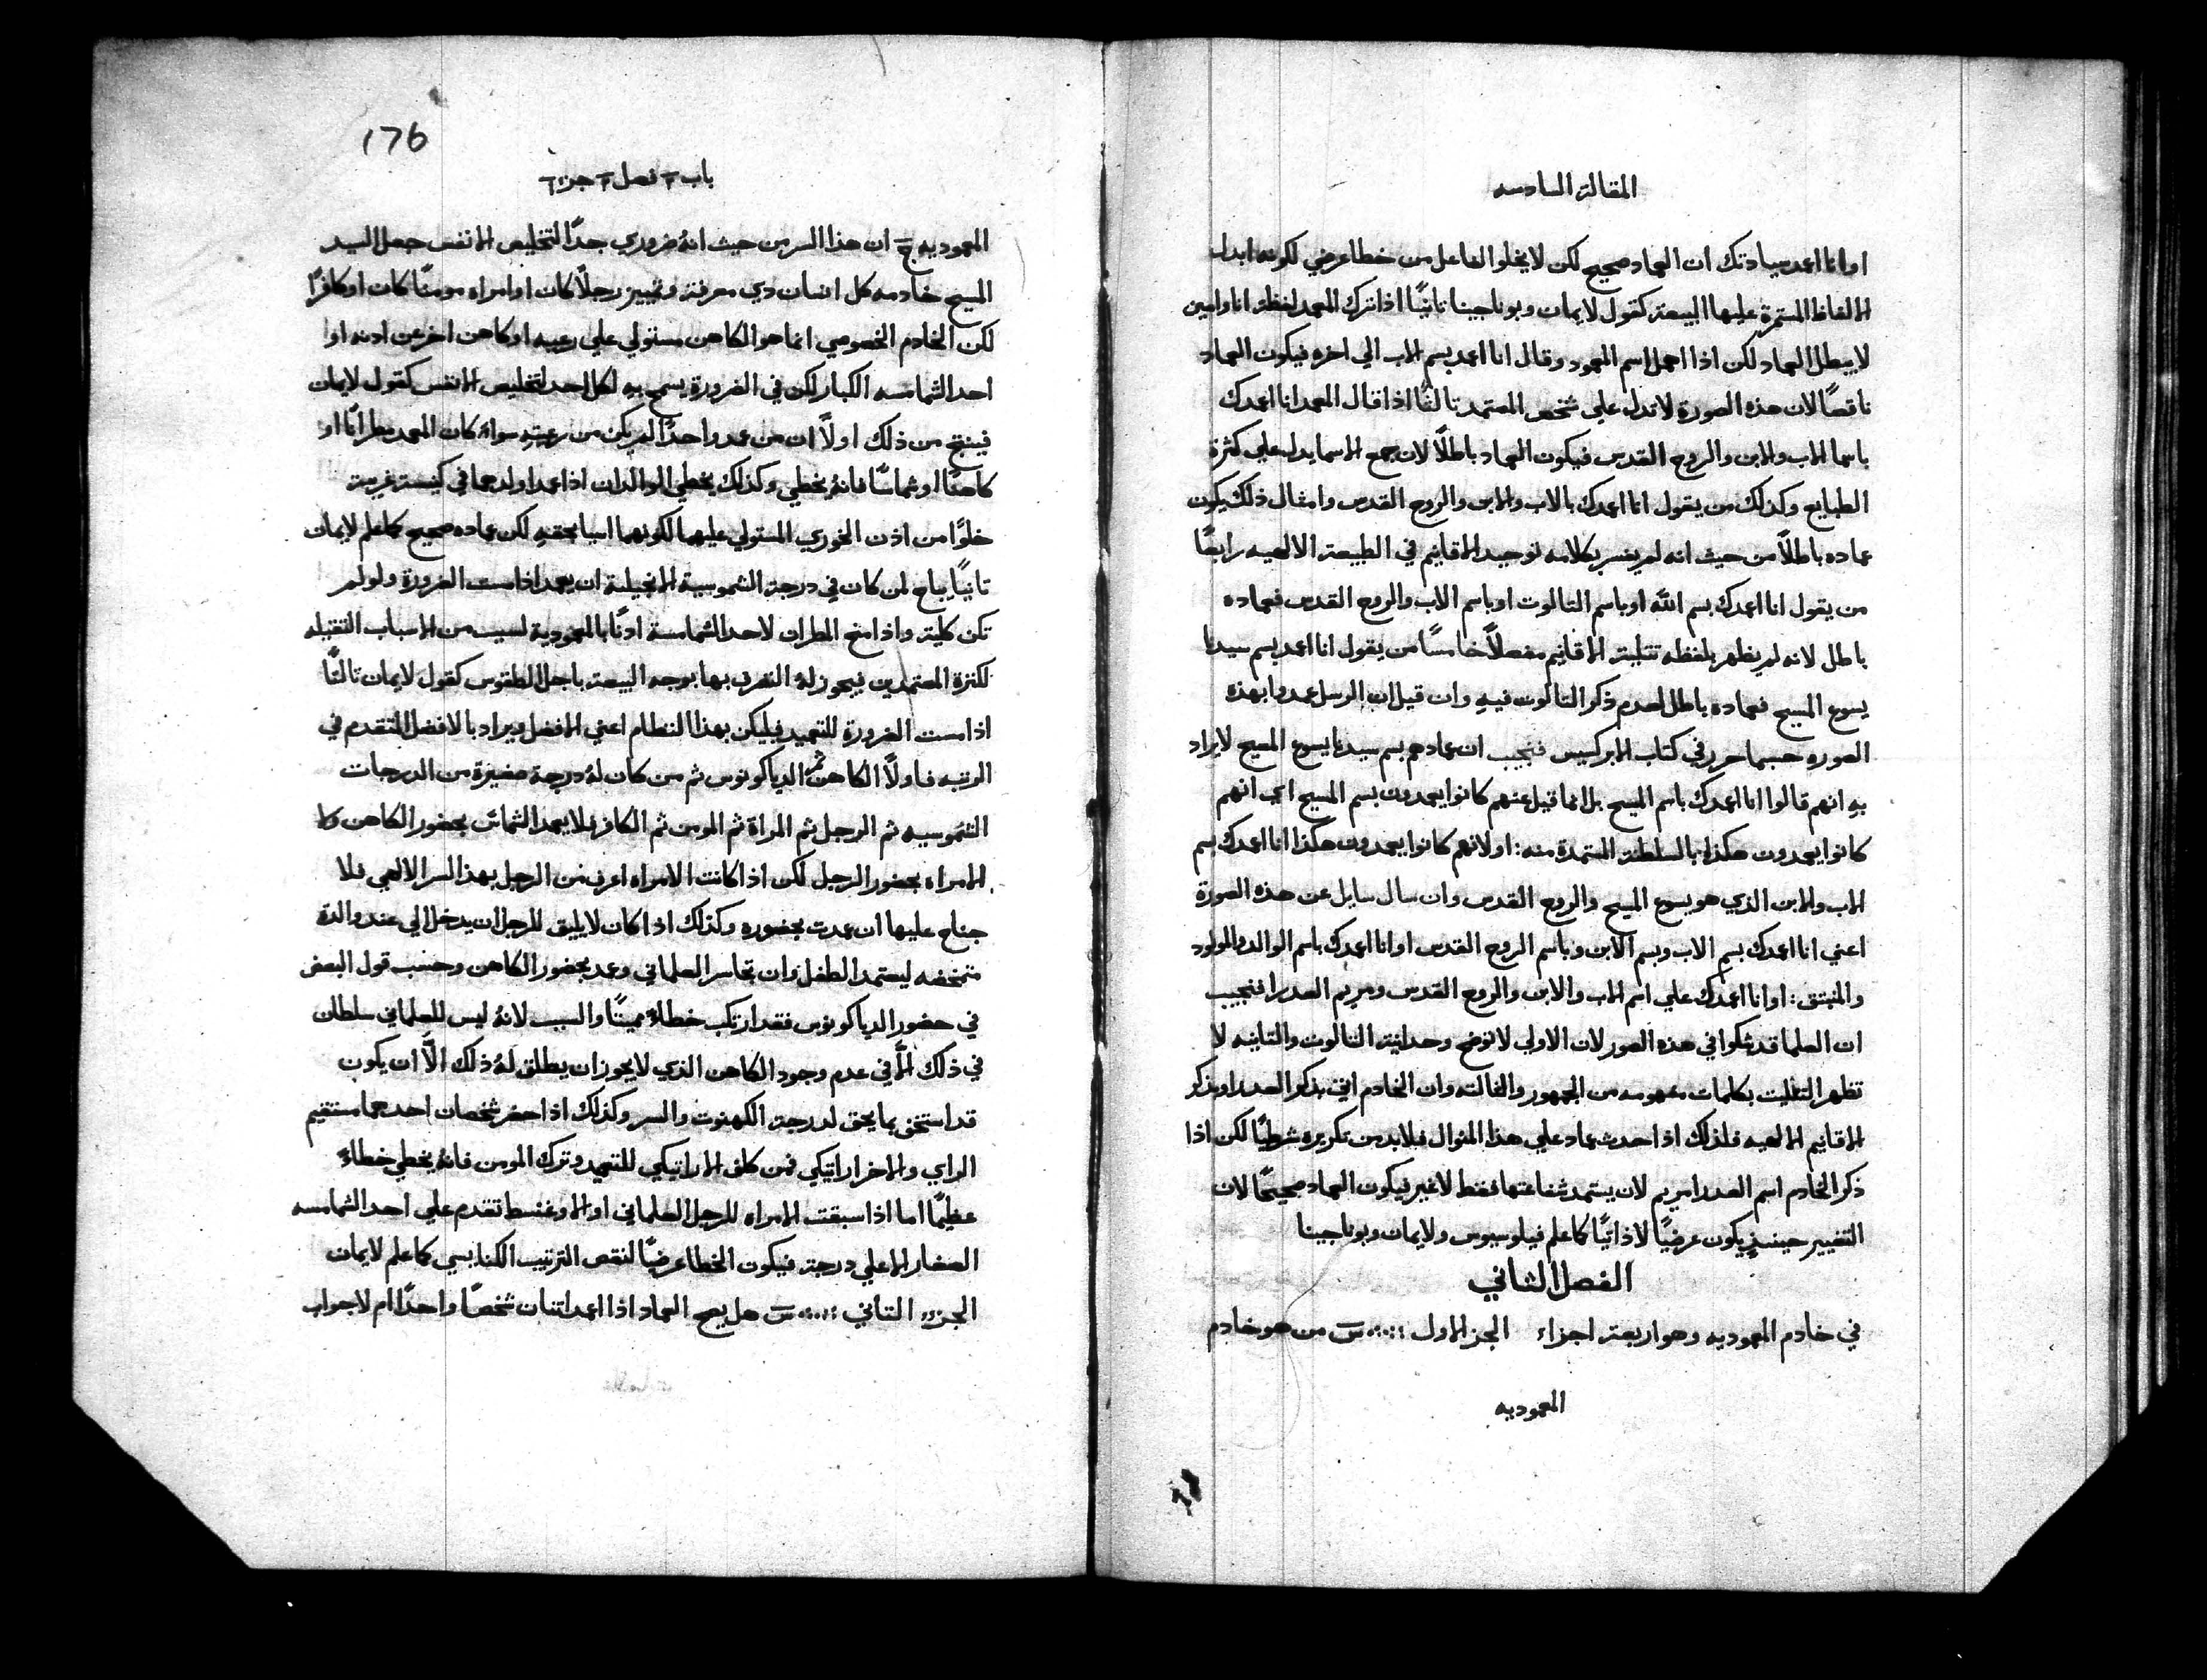 المقالة السادسه
او انا اعمد سيادتك ان العماد صحيح لكن لا يخلو الفاعل من خطا عرضي لكونه ابدل
الالفاظ المستمرة عليها البيعة كقول لايمان وبوناجينا تانيًا اذا ترك المعمد لفظة انا وامين
لا يبطل العماد لكن اذا اهمل اسم المعمود وقال انا اعمد بسم الاب الي اخره فيكون العماد
ناقصًا لان هذه الصورة لا تدل علي شخص المعتمد تالثًا اذا قال المعمد انا اعمدك
باسما الاب والابن والروح القدس فيكون العماد باطلًا لان جمع الاسما يدل علي كثرة
الطبايع وكذلك من يقول انا اعمدك بالاب والابن والروح القدس وامثال ذلك يكون
عماده باطلًا من حيث انه لم يفسر بكلامه توحيد الاقانيم في الطبيعة الالهيه رابعًا
من يقول انا اعمدك بسم الله او باسم التالوت او باسم الاب والروح القدس فعماده
باطل لانه لم يظهر بلفظه تتليت الاقانيم مفصلًا خامسًا من يقول انا اعمد بسم سيدنا
يسوع المسيح فعماده باطل لعدم ذكر التالوت فيه وان قيل ان الرسل عمدوا بهذه
الصوره حسبما حرر في كتاب الابركسيس فنجيب ان عمادهم بسم سيدنا يسوع المسيح لا يراد
به انهم قالوا انا اعمدك باسم المسيح بل انما قيل عنهم كانوا يعمدون بسم المسيح اي انهم
كانوا يعمدون هكذا بالسلطة المستمدة منه: او لانهم كانوا يعمدون هكذا انا اعمدك بسم
الاب والابن الذي هو يسوع المسيح والروح القدس وان سال سايل عن هذه الصورة
اعني انا اعمدك بسم الاب وبسم الابن وباسم الروح القدس او انا اعمدك باسم الوالد والمولود
والمنبتق: او انا اعمدك علي اسم الاب والابن والروح القدس ومريم العدرا فنجيب
ان العلما قد شكوا في هذه الصور لان الاولي لا توضح وحدانية التالوت والتانيه لا
تظهر التتليت بكلمات مفهومه من الجمهور والتالته وان الخادم اتي بذكر العدرا وبذكر
الاقانيم الالهيه فلذلك اذا حدث عماد علي هذا المنوال فلا بد من تكريره شرطيًا لكن اذا
ذكر الخادم اسم العدرا مريم لان يستمد شفاعتها فقط لا غير فيكون العماد صحيحًا لان
التغيير حينيذٍ يكون عرضيًا لا ذاتيًا كما علم فيلوسيوس ولايمان وبوناجينا
الفصل الثاني
في خادم المعموديه وهو اربعة اجزاء الجز الاول س من هو خادم
المعموديه
176
باب فصل جزء
المعموديه ج ان هذا السر من حيث انهُ ضروري جدًا لتخليص الانفس جعل السيد
المسيح خادمه كل انسان دي معرفة وتمييز رجلًا كان او امراه مومنًا كان او كافرًا
لكن الخادم الخصوصي انما هو الكاهن مستولي علي رعيه او كاهن اخر عن ادنه او
احد الشمامسه الكبار لكن في الضرورة يسمح به لكل احد لتخليص الانفس كقول لايمان
فينتج من ذلك اولًا ان من عمد واحدًا لم يكن من رعيته سواء كان المعمد مطرانًا او
كاهنًا او شماسًا فانهُ يخطي وكذلك يخطي الوالدان اذا عمدا ولدهما في كنيسة غريبة
خلوًا من اذن الخوري المستولي عليهما لكونهما اسيا بحقهِ لكن عماده صحيح كما علم لايمان
تانيًا يباح لمن كان في درجة الشموسية الانجيلية ان يعمد اذا مست الضرورة ولو لم
تكن كلية واذا منح المطران لاحد الشمامسة ادنًا بالمعمودية لسبب من الاسباب التقيله
لكترة المعتمدين فيجوز لهُ التصرف بها بوجه البيعة باجل الطقوس كقول لايمان تالتًا
اذا مست الضرورة للتعميد فيليكن بهذا النظام اعني الافضل ويراد بالافضل المتقدم في
الرتبه فاولًا الكاهن ثم الدياكونوس ثم من كان لهُ درجة صغيرة من الدرجات
الشموسيه ثم الرجل ثم المراة ثم المومن ثم الكافر فلا يعمد الشماس بحضور الكاهن ولا
الامراه بحضور الرجل لكن اذا كانت الامراه اعرف من الرجل بهذا السر الالهي فلا
جناح عليها ان عمدت بحضوره وكذلك اذا كان لا يليق للرجل ان يدخل الي عند والدة
متمخضه ليعتمد الطفل وان تجاسر العلماني وعمد بحضور الكاهن وحسب قول البعض
في حضور الدياكونوس فقد ارتكب خطاءً مميتًا والسبب لانهُ ليس للعلماني سلطان
في ذلك الّا في عدم وجود الكاهن الذي لا يجوز ان يطلق لهُ ذلك الّا ان يكون
قد استخف بما يحق لدرجة الكهنوت والسر وكذلك اذا حضر شخصان احدهما مستقيم
الراي والاخر اراتيكي فمن كلف الاراتيكي للتعميد وترك المومن فانهُ يخطي خطاءً
عظيمًا اما اذا سبقت الامراه للرجل العلماني او الاوغنسط تقدم علي احد الشمامسه
الصغار الاعلي درجة فيكون الخطا عرضيًا لنقص الترتيب الكنايسي كما علم لايمان
الجزء التاني س هل يصح العماد اذا اعمد اتنان شخصًا واحدًا ام لا جواب